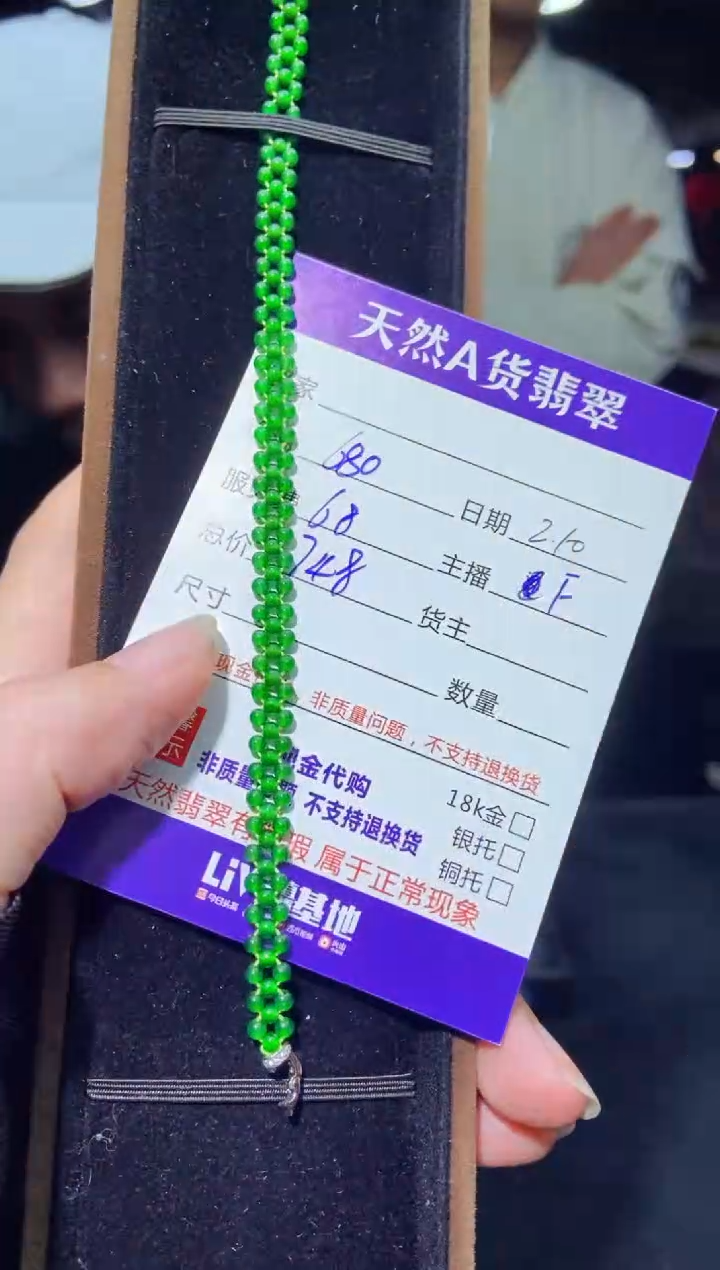 天然A货翡翠
家
680
日期 2.10
服
68
主播 F
总价 748
货主
尺寸
数量
现金
非质量问题，不支持退换货
示
现金代购
18k金
非质量 题 不支持退换货
银托
铜托
天然翡翠有 瑕 属于正常现象
Liv 基地
今日头条
火山